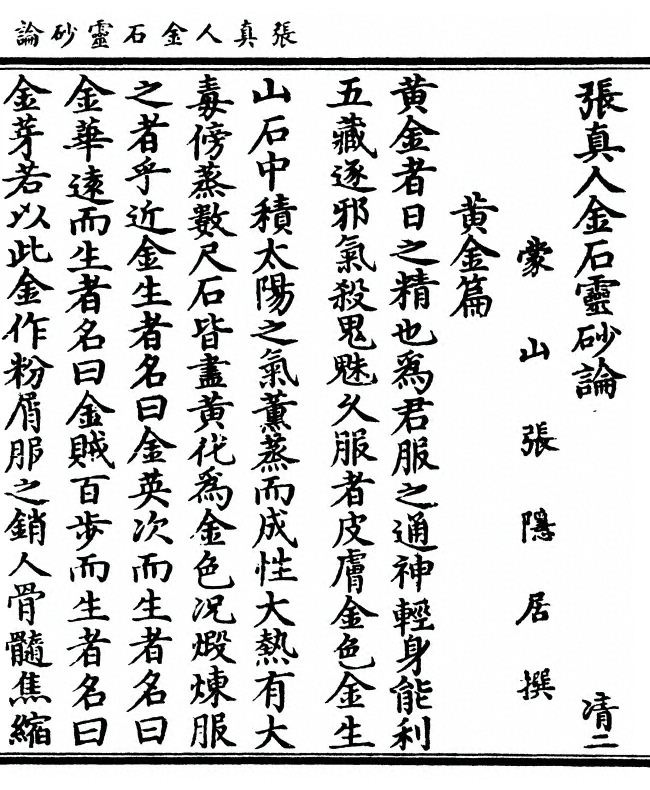 張真人金石靈砂論
張真人金石靈砂論
清二
蒙山張隱居撰
黃金篇
黃金者日之精也為君服之通神輕身能利
五藏逐邪氣殺鬼魅久服者皮膚金色金生
山石中積太陽之氣薰蒸而成性大熱有大
毒傍蒸數尺石皆盡黃化為金色況煅煉服
之者乎近金生者名曰金英次而生者名曰
金華遠而生者名曰金賊百步而生者名曰
金芽若以此金作粉屑服之銷人骨髓焦縮